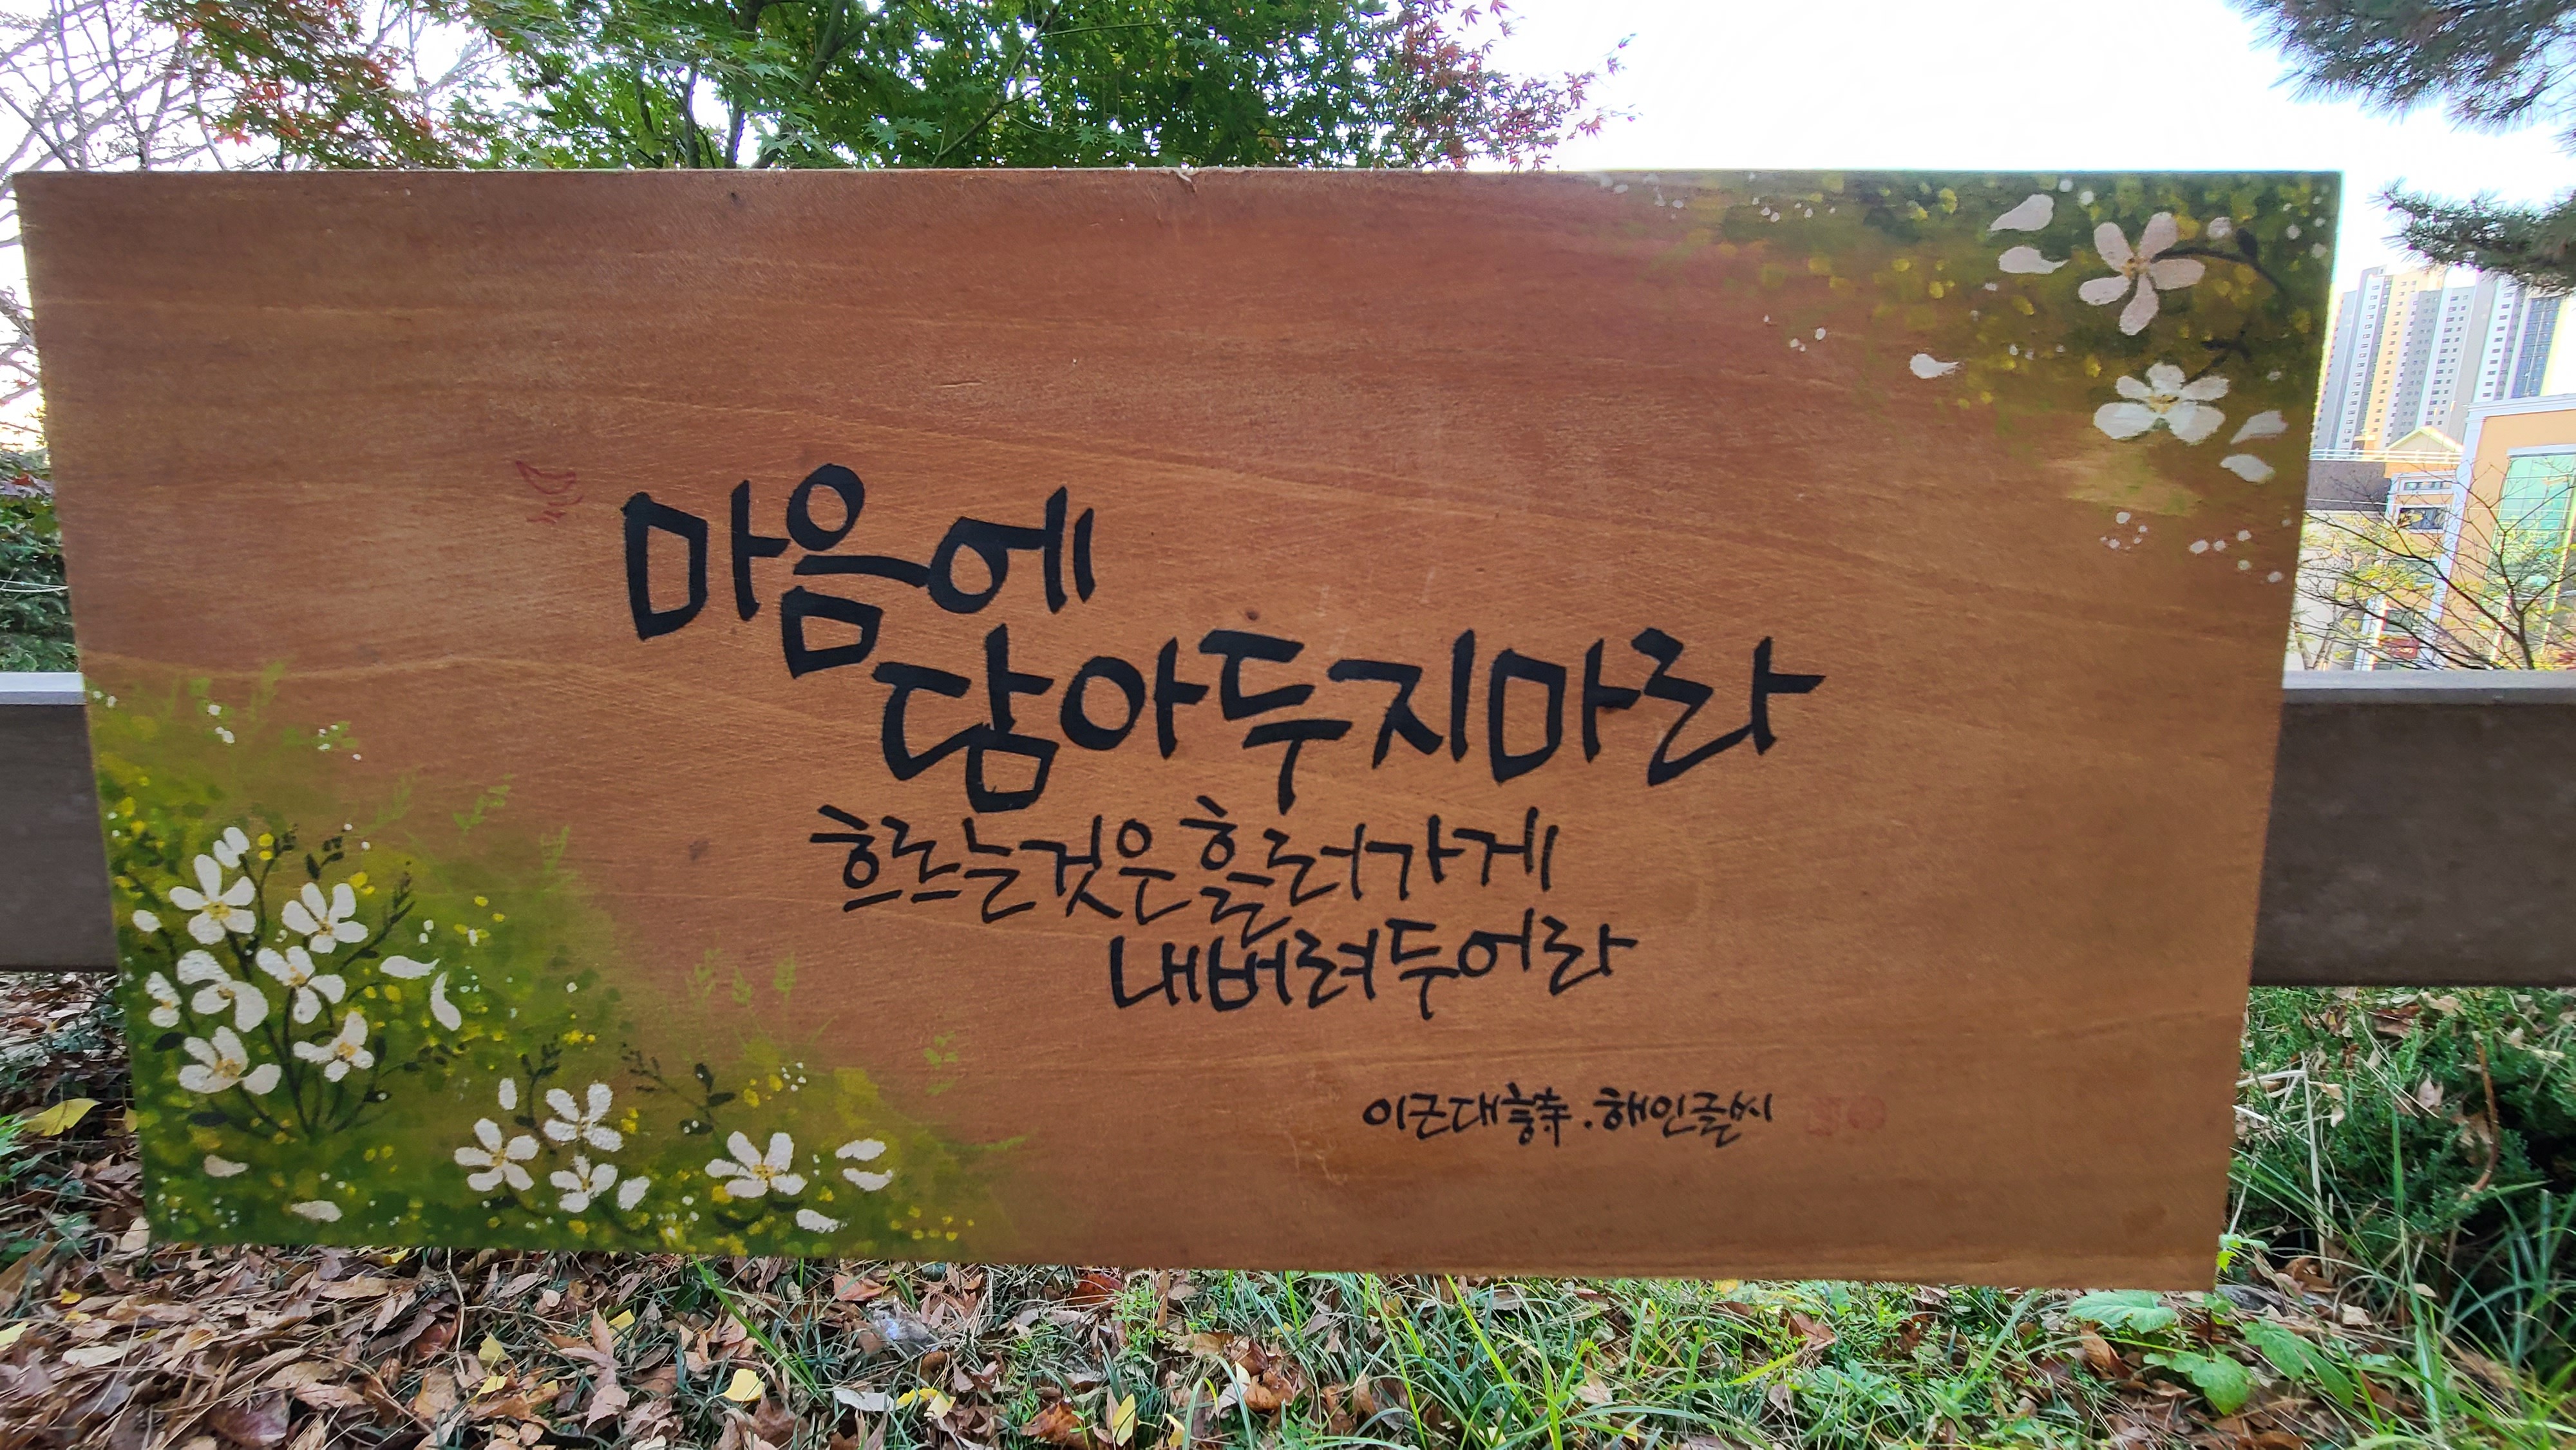 마음에
담아두지마라
흐르는것은흘러가게
내버려두어라
이근대 詩 . 해인글씨